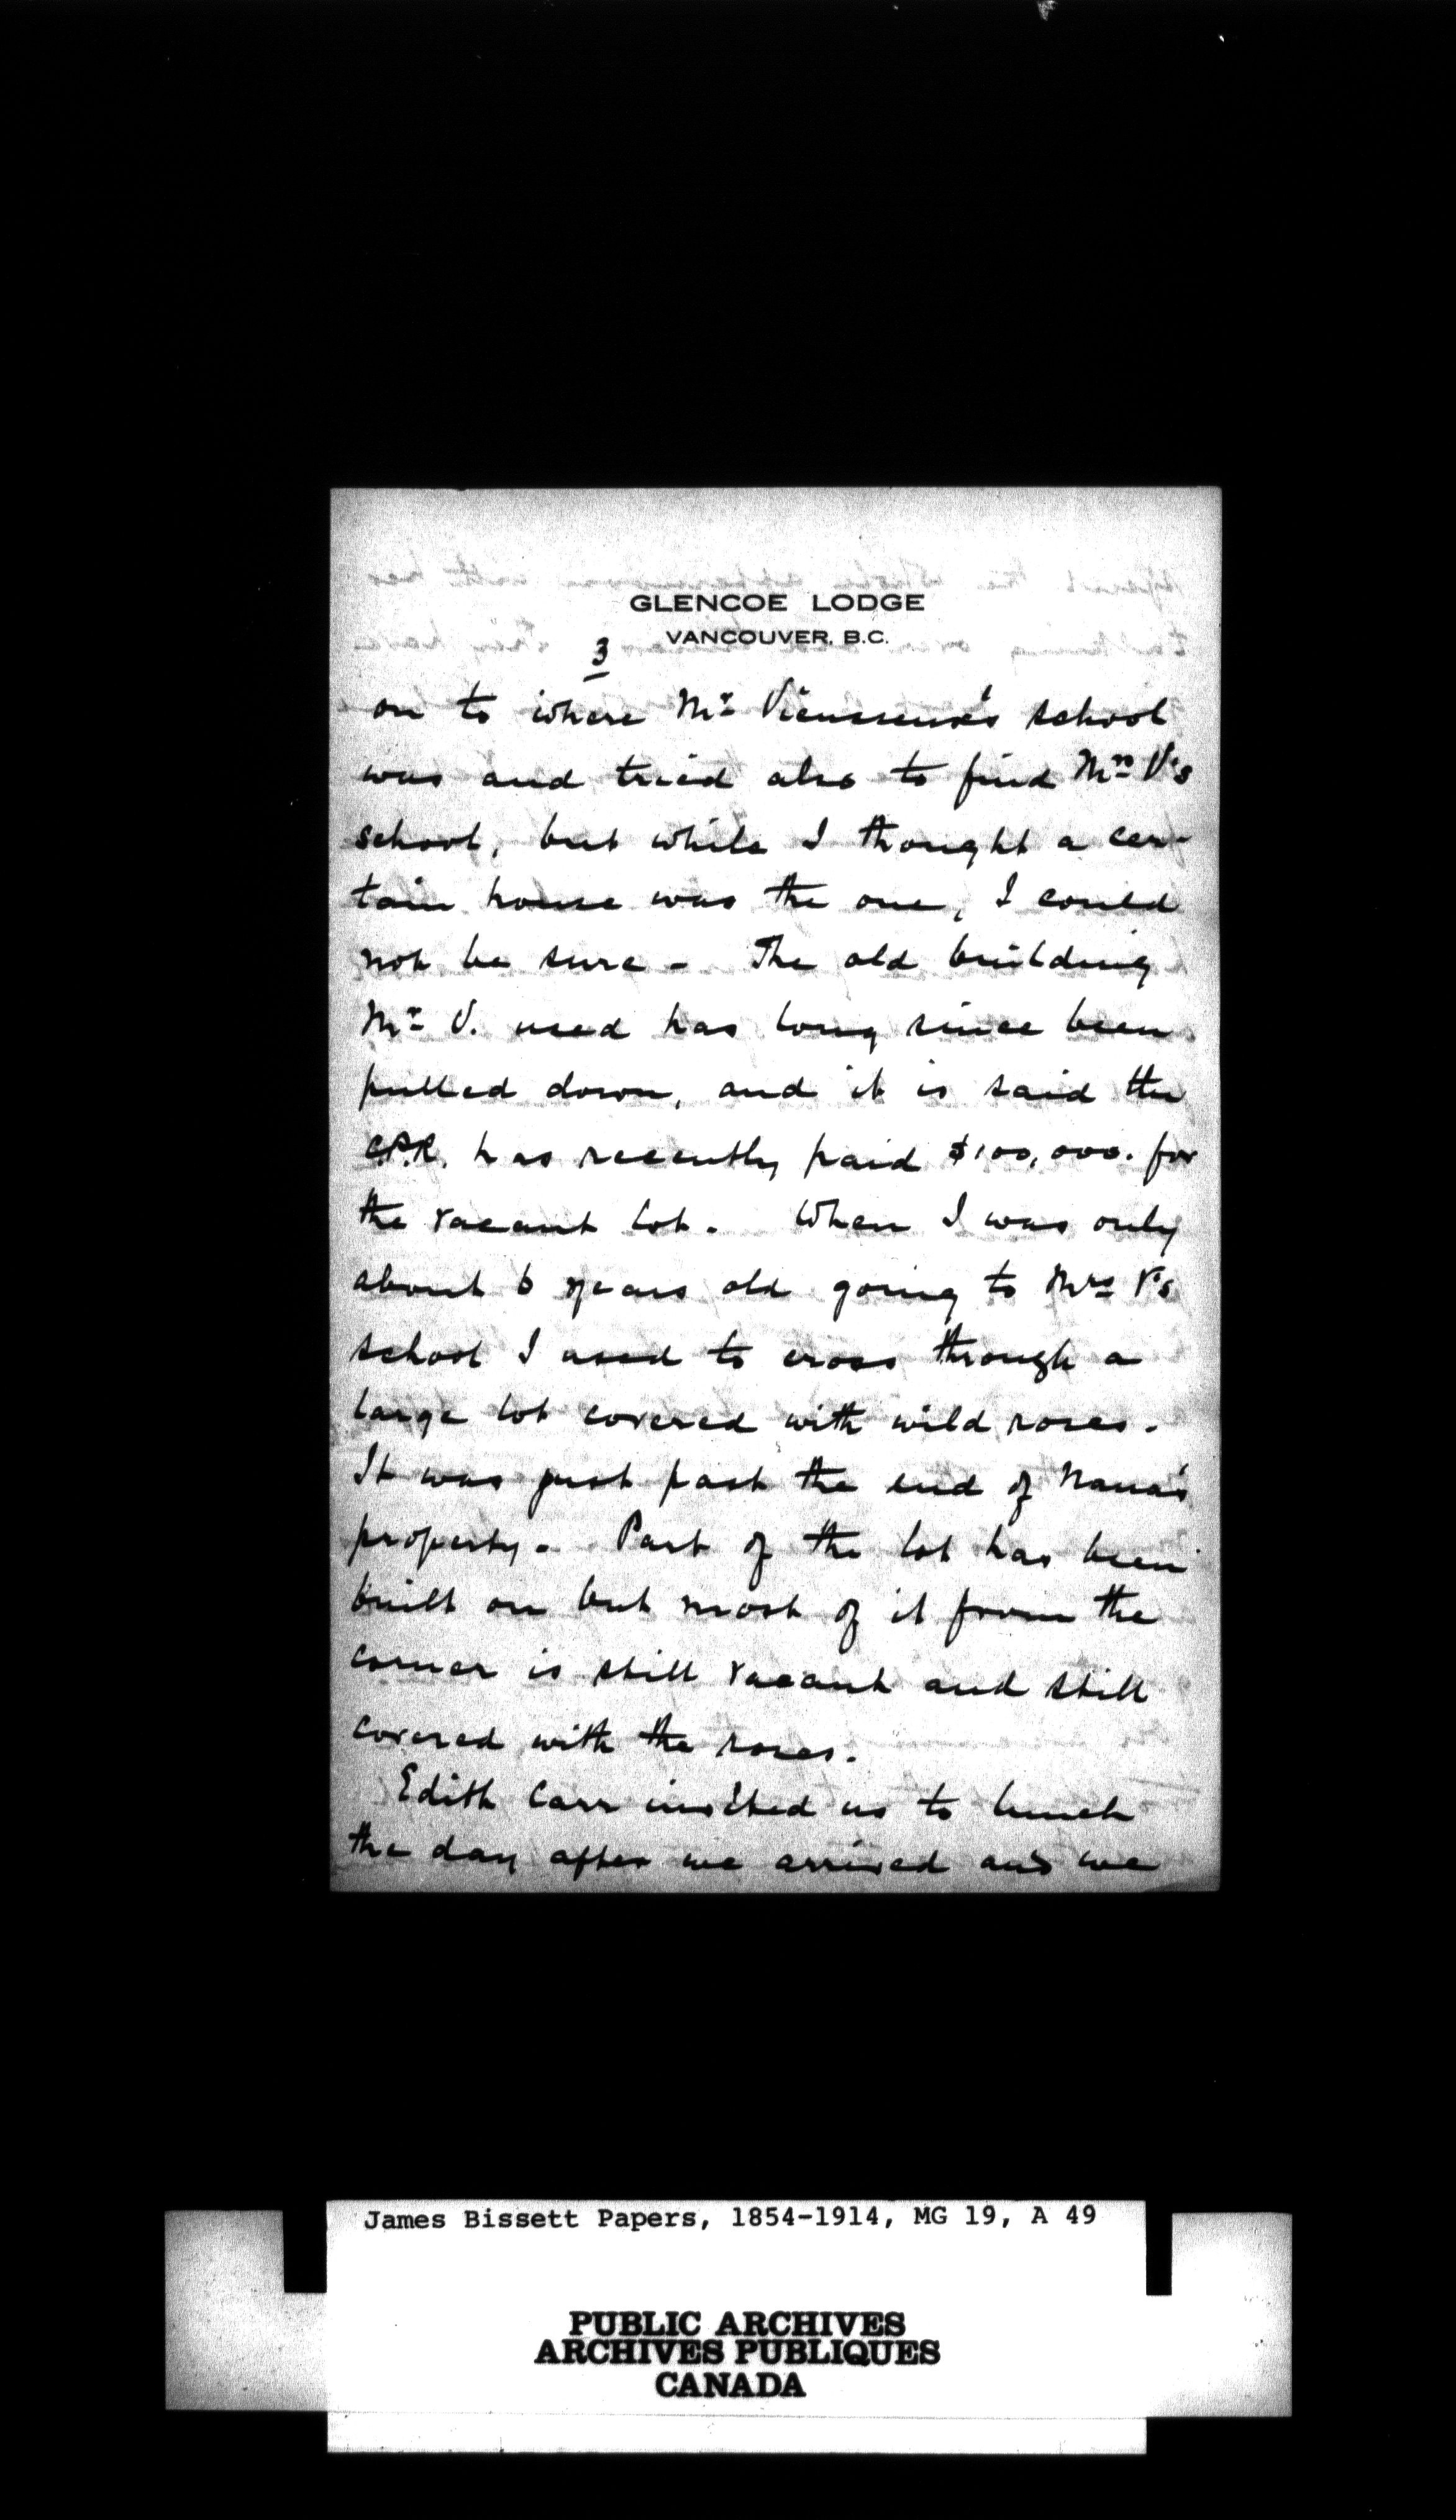 GLENCOE LODGE
VANCOUVER, B.C.
3
on to where Mr Vieusseux's school
was and tried also to find Mrs V's
school, but while I thought a cer-
tain house was the one, I could
not be sure - The old building
Mr V. used has long since been
pulled down, and it is said the
C.P.R. has recently paid $100,000. for
the vacant lot. When I was only
about 6 years old going to Mrs V's
school I used to cross through a
large lot covered with wild roses.
It was just past the end of Nana's
property. Part of the lot has been
built on but most of it from the
corner is still vacant and still
covered with the roses.
Edith Carr invited us to lunch
the day after we arrived and we
James Bissett Papers, 1854-1914, MG 19, A 49
PUBLIC ARCHIVES
ARCHIVES PUBLIQUES
CANADA